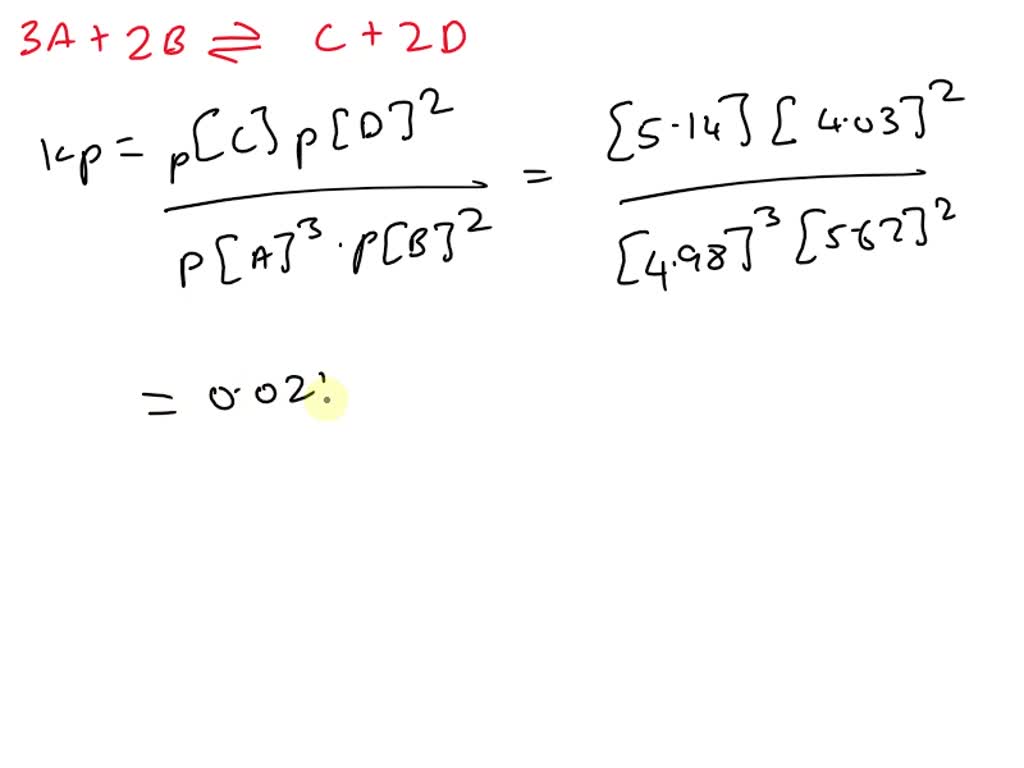 3A + 2B ⇌ C + 2D
Kp = p[C] p[D]² / P[A]³ · P[B]² = [5.14] [4.03]² / [4.98]³ [5.62]²
= 0.02